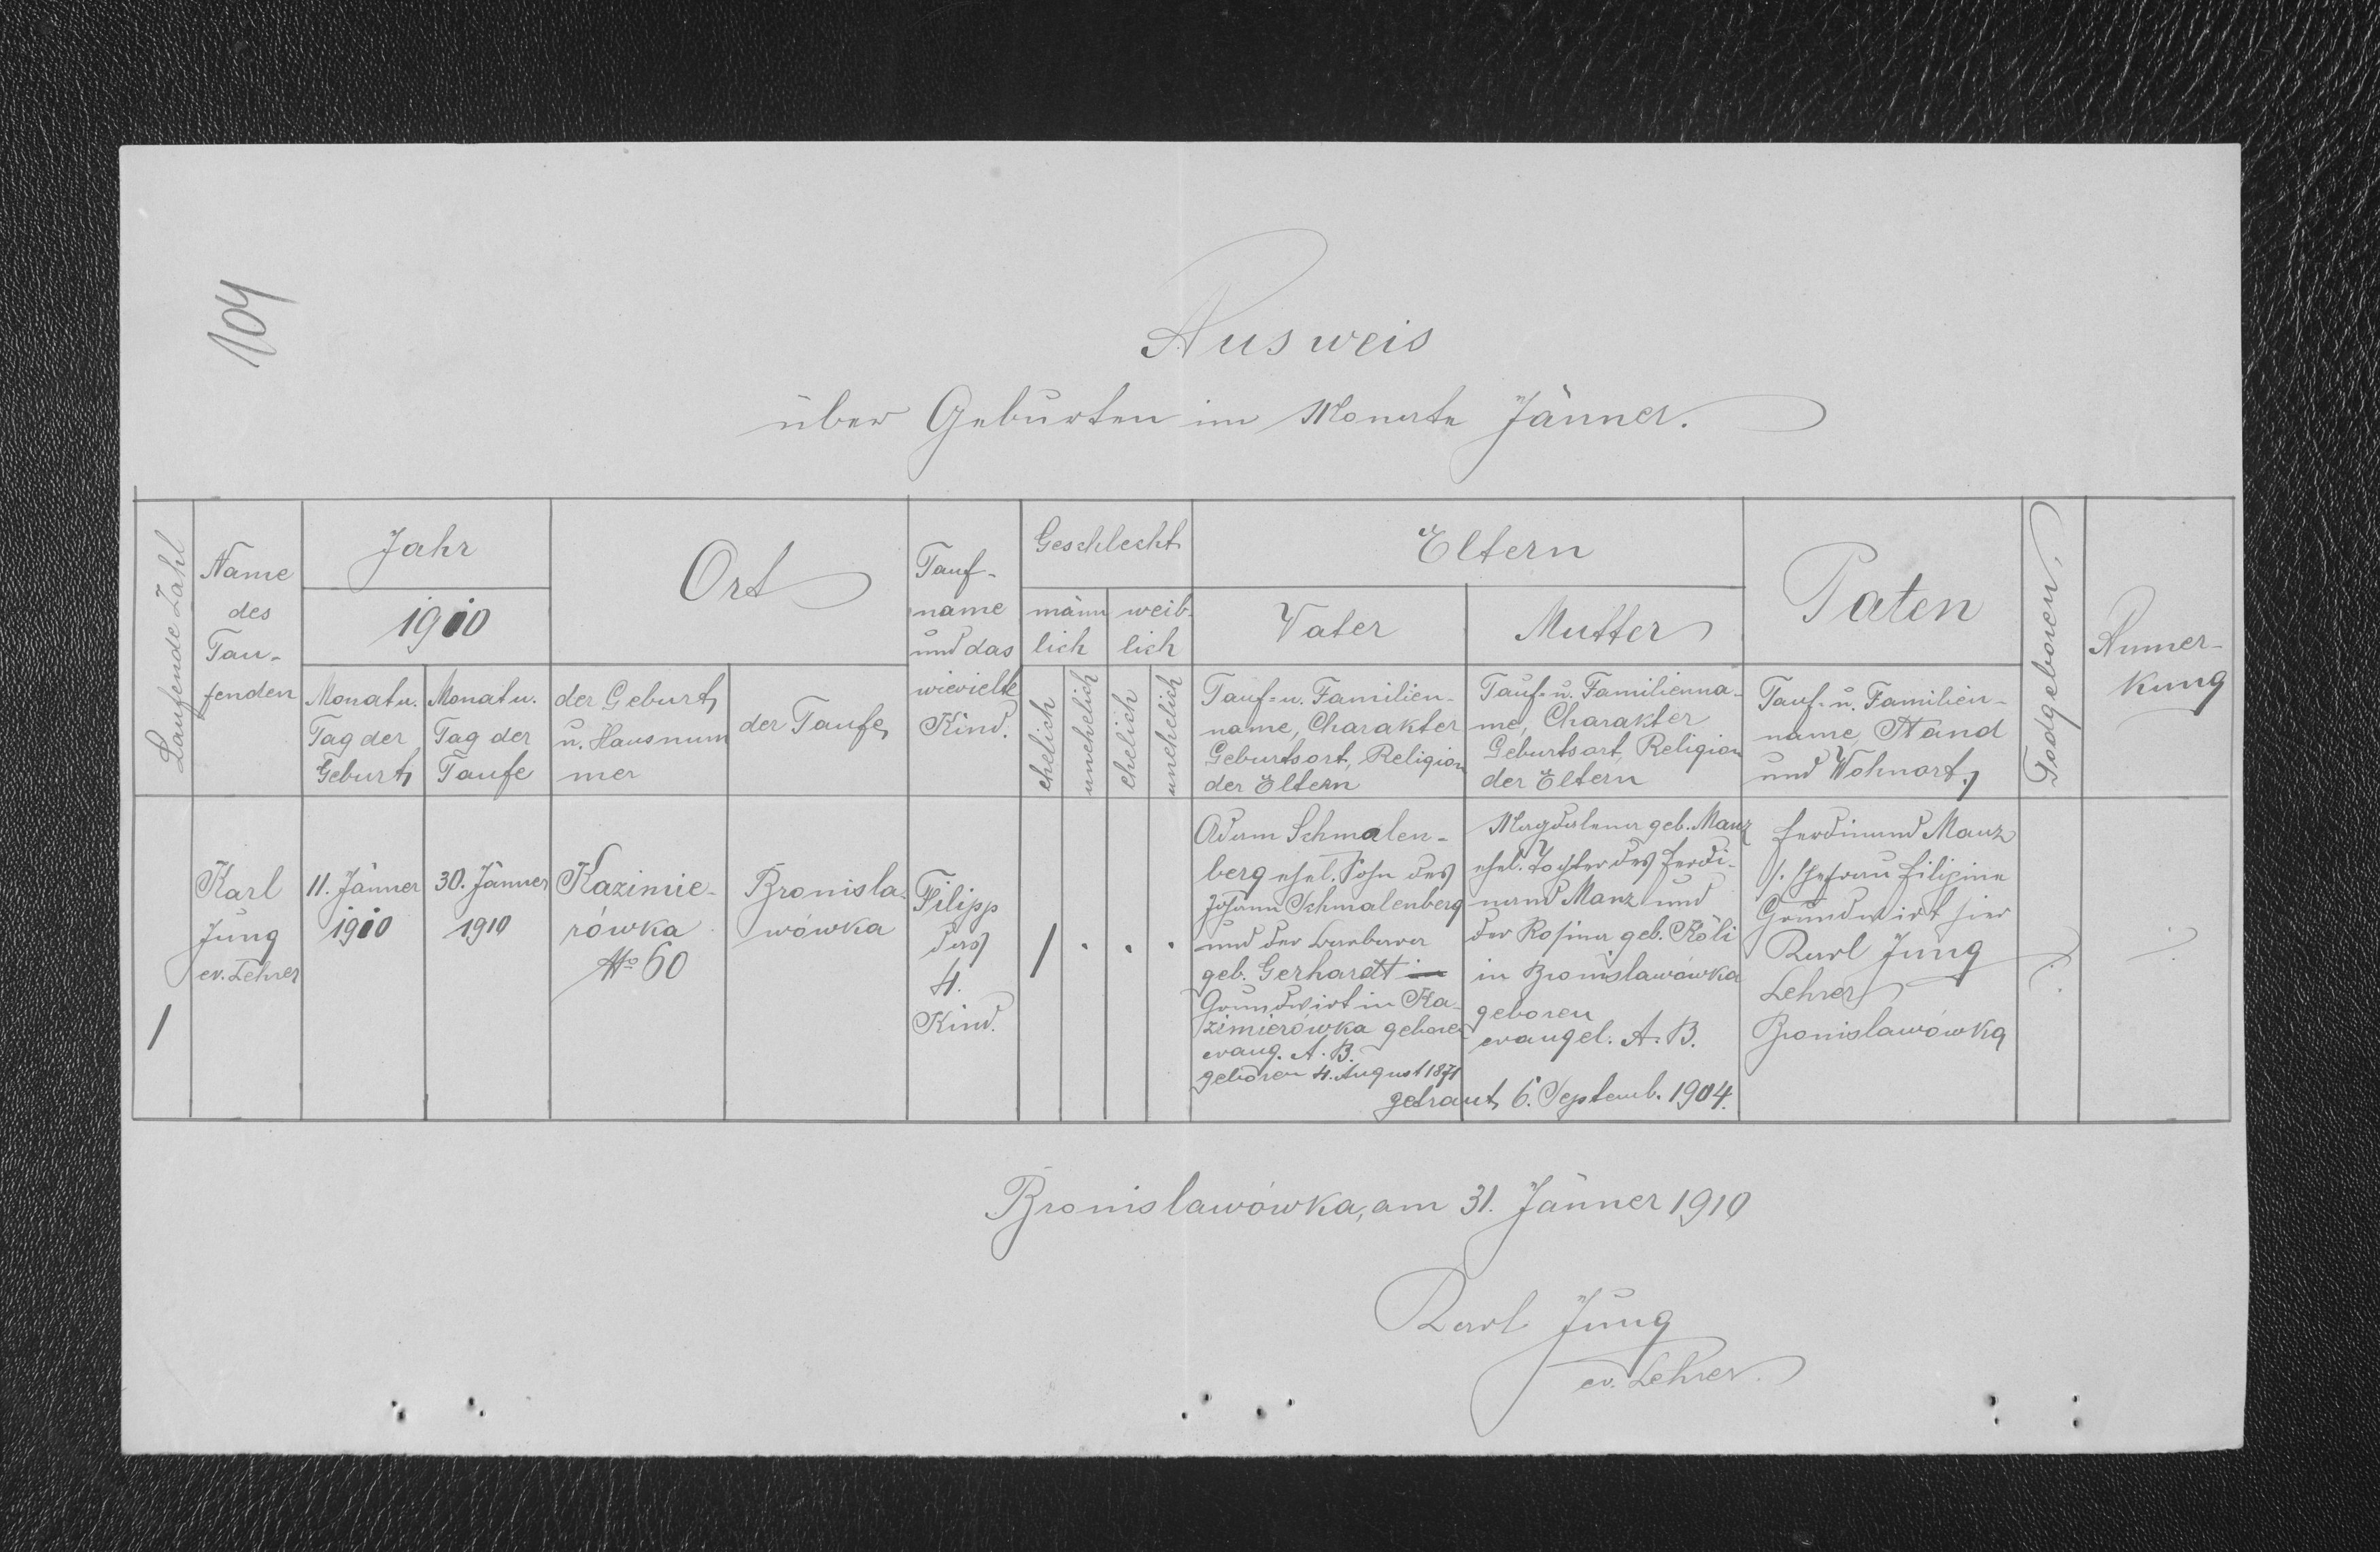 104
Ausweis
über Geburten im Monate Jänner.
Laufende Zahl
Name
des
Tau-
fenden
Jahr
1910
Monat u.
Tag der
Geburt
Monat u.
Tag der
Taufe
Ort
der Geburt
u. Hausnum
mer
der Taufe
Tauf-
name
und das
wievielte
Kind.
Geschlecht
männ
lich
weib-
lich
ehelich
unehelich
ehelich
unehelich
Eltern
Vater
Mutter
Tauf- u. Familien-
name, Charakter
Geburtsort, Religion
der Eltern
Tauf- u. Familienna-
me, Charakter
Geburtsort, Religion
der Eltern
Paten
Tauf- u. Familien-
name, Stand
und Wohnort
Todgeboren
Anmer-
kung
1
Karl
Jung
ev. Lehrer
11. Jänner
1910
30. Jänner
1910
Kazimie-
rówka
No 60
Bronisla-
wówka
Filipp
das
4.
Kind.
1
Adam Schmalen-
berg ehel. Sohn des
Johann Schmalenberg
und der Barbara
geb. Gerhardt
Grundwirt in Ka-
zimierówka geboren
evang. A. B.
geboren 4. August 1871
Magdalena geb. Manz
ehel. Tochter des Ferdi-
nand Manz und
der Rosina geb. Köli
in Bronislawówka
geboren
evangel. A. B.
getraut 6. Septemb. 1904.
Ferdinand Manz
Ehefrau Filipine
Grundwirt hier
Karl Jung
Lehrer
Bronislawówka
Bronislawówka, am 31. Jänner 1910
Karl Jung
ev. Lehrer.